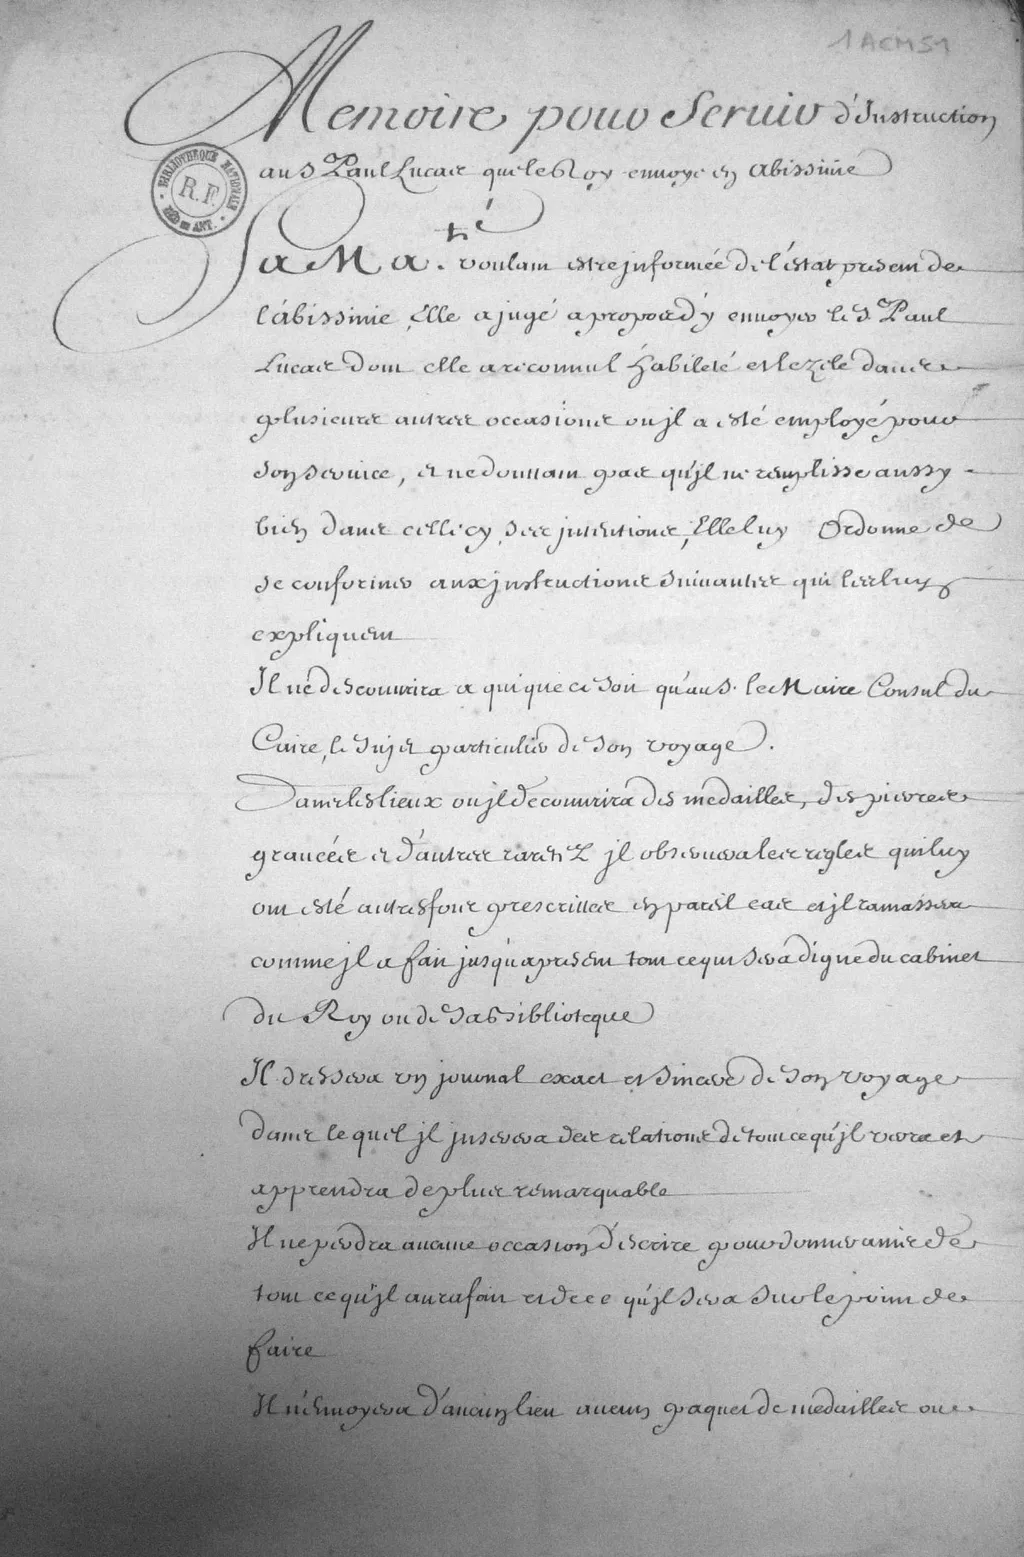 1 ACM 51
Memoire pour Servir d'Instruction
au S. Paul Lucas que le Roy envoye en Abissinie
BIBLIOTHEQUE NATIONALE
R.F.
MED. ET ANT.
Sa Ma.té voulant estre informée de l'état present de
l'abissinie, Elle a jugé a propos d'y envoyer le S. Paul
Lucas dont elle a reconnu l'habileté et le zele dans
plusieurs autres occasions ou jl a esté employé pour
son service, et ne doutant pas qu'jl ne remplisse aussy
bien dans celle cy ses jntentions, Elle luy Ordonne de
se conformer aux jnstructions suivantes qui les luy
expliquent
Il ne descouvrira a qui que ce soit qu'au S. le Maire Consul du
Caire, le sujet particulier de son voyage.
Dans les lieux ou jl decouvrira des medailles, des pierres
gravées et d'autres raretez jl observera les regles qui luy
ont esté autresfois prescrittes en pareil cas et jl ramassera
comme jl a fait jusqu'a present tout ce qui sera digne du cabinet
du Roy ou de sa Biblioteque
Il dressera un journal exact et sincere de son voyage
dans lequel jl jnserera des relations de tout ce qu'jl verra et
apprendra de plus remarquable
Il ne perdra aucune occasion d'escrire pour donner avis de
tout ce qu'jl aura fait et de ce qu'jl sera sur le point de
faire
Il n'envoyera d'aucun lieu aucun paquet de medailles ou